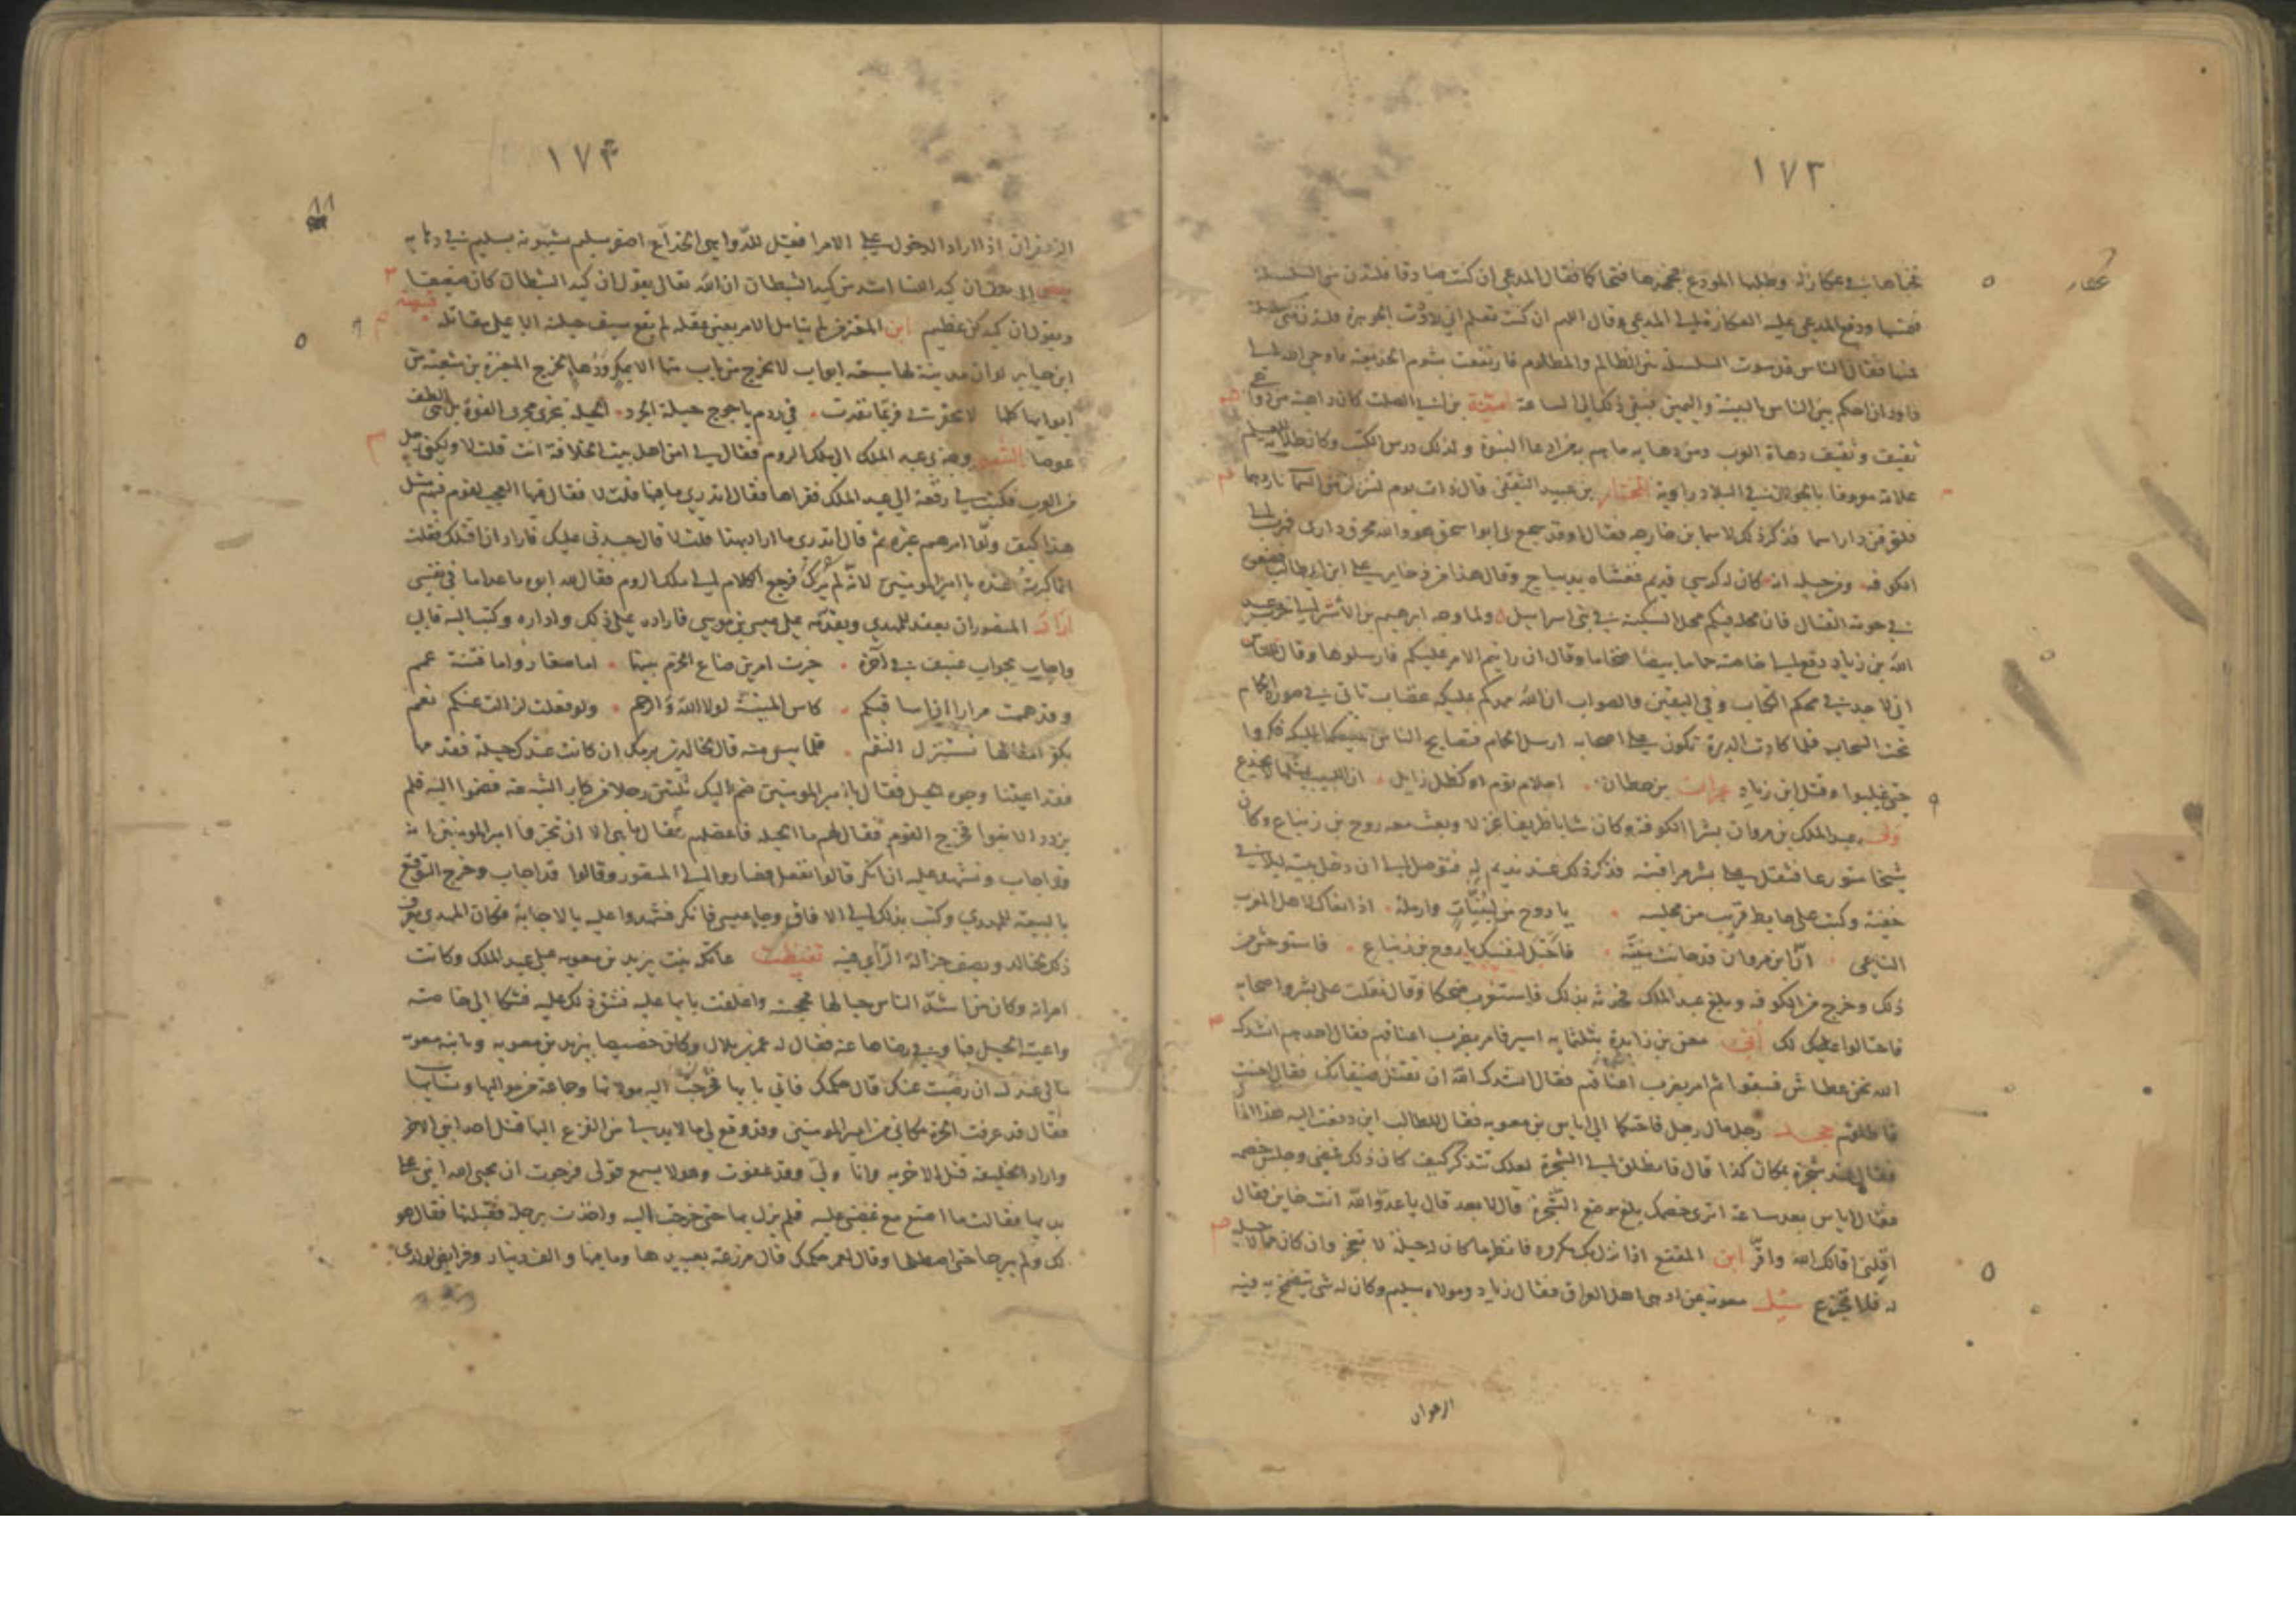 ١٧٢
فخباها في عكازة وطلبها المودع فجحدها فتحاكما فقال المدعي ان كنت صادقا فلتدن مني السلسلة
فمسها ودفع المدعى عليه العكازة الى المدعي وقال اللهم ان كنت تعلم اني رددت الجوهرة فلتدن مني السلسلة
فمسها فقال الناس قد سوت السلسلة بين الظالم والمظلوم فارتفعت بشوم الخديعة واوحى الله الى
داود ان احكم بين الناس بالبينة واليمين فبقي ذلك الى الساعة امية بن ابي الصلت كان داهية من دواهي
ثقيف وثقيف دهاة العرب ومن دهايه ما هم به من ادعاء النبوة ولذلك درس الكتب وكان طلابة للعلم
علامة معروفا بالجولان في البلاد راوية المختار بن عبيد الثقفي قال ذات يوم لتنزلن من السماء نار دهما
فلتحرقن دار اسما فذكر ذلك لاسما بن خارجه فقال اوقد سجع بي ابو اسحق هو والله محرق داري فهرب الى
الكوفة ومن حيله انه كان له كرسي قديم فغشاه بديباج وقال هذا من ذخاير علي ابن ابي طالب فضعوه
في حومة القتال فان محله فيكم محل السكينة في بني اسراييل ولما وجه ابرهيم بن الاشتر الى حرب عبيد
الله بن زياد دفع الى خاصته حماما بيضا ضخاما وقال ان رايتم الامر عليكم فارسلوها وقال للناس
اني لاجد في محكم الكتاب وفي اليقين والصواب ان الله ممدكم بمليكة غضاب تاتي في صور الحمام
تحت السحاب فلما كادت الدبرة تكون على اصحابه ارسل الحمام فتصايح الناس المليكة فكروا
حتى غلبوا وقتل ابن زياد عمران بن حطان احلام نوم او كظل زايل ان اللبيب بمثلها لا يخدع
ولى عبد الملك بن مروان بشرا الكوفة وكان شابا ظريفا غزلا وبعث معه روح بن زنباع وكان
شيخا متورعا فثقل على بشر مرافقته فذكر ذلك عند نديم له فتوصل الى ان دخل بيته ليلا في
خفية وكتب على حايط قريب من مجلسه يا روح من لبنيات وارملة اذا نعاك لاهل المغرب
الناعي ان ابن مروان قد حانت منيته فاحتل لنفسك يا روح بن زنباع فاستوحش من
ذلك وخرج من الكوفة وبلغ عبد الملك فحدثه بذلك فاستغرب ضحكا وقال ثقلت على بشر واصحابه
فاحتالوا عليك لك اتى معن بن زايدة بثلثمايه اسير فامر بضرب اعناقهم فقال احدهم انشدك
الله نحن عطاش فسقوا ثم امر بضرب اعناقهم فقال انشدك الله ان تقتل ضيفانك فقال احسنت
فاطلقهم جحد رجل مال رجل فاحتكما الى اياس بن معويه فقال للطالب اين دفعت اليه هذا المال
فقال عند شجرة بمكان كذا قال فانطلق الى الشجرة لعلك تتذكر كيف كان ذلك فمضى وجلس خصمه
فقال اياس بعد ساعة اترى خصمك بلغ موضع الشجرة قال لا بعد قال يا عدو الله انت خاين فقال
اقلني اقالك الله واقر ابن المقفع اذا نزل بك مكروه فانظر ما كان له حيلة فلا تعجز وان كان مما لا حيلة
له فلا تجزع سئل معوية عن ادهى اهل العراق فقال زياد ومولاه سليم وكان له شي يتضمخ به فيه
الزعفران
١٧٣
الزعفران اذا اراد الدخول على الامرا فقيل للدواهي الخداع اصفر سليم يشبهونه بسليم في دهايه
ان كيد النسا اشد من كيد الشيطان ان الله تعالى يقول ان كيد الشيطان كان ضعيفا
ويقول ان كيدكن عظيم ابن المعتز من لم يتامل الامر بعين عقله لم يقع سيف حيلته الا على مقاتله قبيصة
ابن جابر لو ان مدينة لها سبعة ابواب لا يخرج من باب منها الا بمكر ودهاء لخرج المغيرة بن شعبة من
ابوابها كلها لا تحقرن في ردم ياجوج حيلة الجرذ الحيلة تجري مجرى القوة بل هي الطف
عوضا الشعبي وجهني عبد الملك الى ملك الروم فقال لي امن اهل بيت الخلافة انت قلت لا ولكني رجل
من العرب فكتب لي رقعة الى عبد الملك فقراها فقال اتدري ما فيها قلت لا فقال فيها العجب لقوم فيهم مثل
هذا كيف ولوا امرهم غيره ثم قال اتدري ما اراد بهذا قلت لا قال حسدني عليك فاراد ان اقتلك فقلت
انما كبرت عنده يا امير المومنين لانه لم يرك فرجع الكلام الى ملك الروم فقال لله ابوه ما عدا ما في نفسي
اراد المنصور ان يعقد للمهدي ويقدمه على عيسى بن موسى فاراده على ذلك واداره وكتب اليه فابى
واجاب بجواب عنيف في اخره خيرت امرين ضاع الحزم بينهما اما صغار واما فتنة عمم
وقد هممت مرارا ان اساقيكم كاس المنية لولا الله والرحم ولو فعلت لزالت عنكم نعم
بكفر امثالها تستنزل النقم فلما يس منه قال لخالد بن برمك ان كانت عندك حيلة فقدمها
فقد اعيتنا وجوه الحيل فقال يا امير المومنين ضم اليك ثلثين رجلا من كبار الشيعة فمضوا اليه فلم
يزدد الا نبوا فخرج القوم فقال لهم ما الحيلة فاعضلهم فقال ما هي الا ان تخبروا امير المومنين انه
قد اجاب ونشهد عليه ان انكر قالوا نفعل فصاروا الى المنصور وقالوا قد اجاب وخرج التوقيع
بالبيعة للمهدي وكتب بذلك الى الافاق وجا عيسى فانكر فشهدوا عليه بالاجابة فكان المهدي يعرف
ذلك لخالد ويصف جزالة الراي فيه تغيظت عاتكة بنت يزيد بن معويه على عبد الملك وكانت
امراته وكان من اشد الناس حبا لها فحجبته واغلقت بابها عليه فشق ذلك عليه فشكا الى خاصته
واعيته الحيل فيها وفي رضاها عنه فقال له عمر بن بلال وكان خصيصا بيزيد بن معويه وبابنه معويه
ما لي عندك ان رضيت عنك قال حكمك فاتى بابها فخرجت اليه مولاتها وجماعة من مواليها ونسايها
فقال قد عرفت الحرة مكاني من امير المومنين وقد وقع لي ما لا بد لي من الفزع اليها قتل احد ابني الاخر
واراد الخليفة قتل الاخر به وانا ولي وقد عفوت وهو لا يسمع قولي فرجوت ان يحيي الله ابني على
يديها فقالت ما اصنع مع غضبي عليه فلم يزل بها حتى خرجت اليه واخذت برجله فقبلتها فقال هو
لك ولم يبرحا حتى اصطلحا وقال لعمر حكمك قال مزرعة بعبيدها وما فيها والف دينار وفرايض لولدي